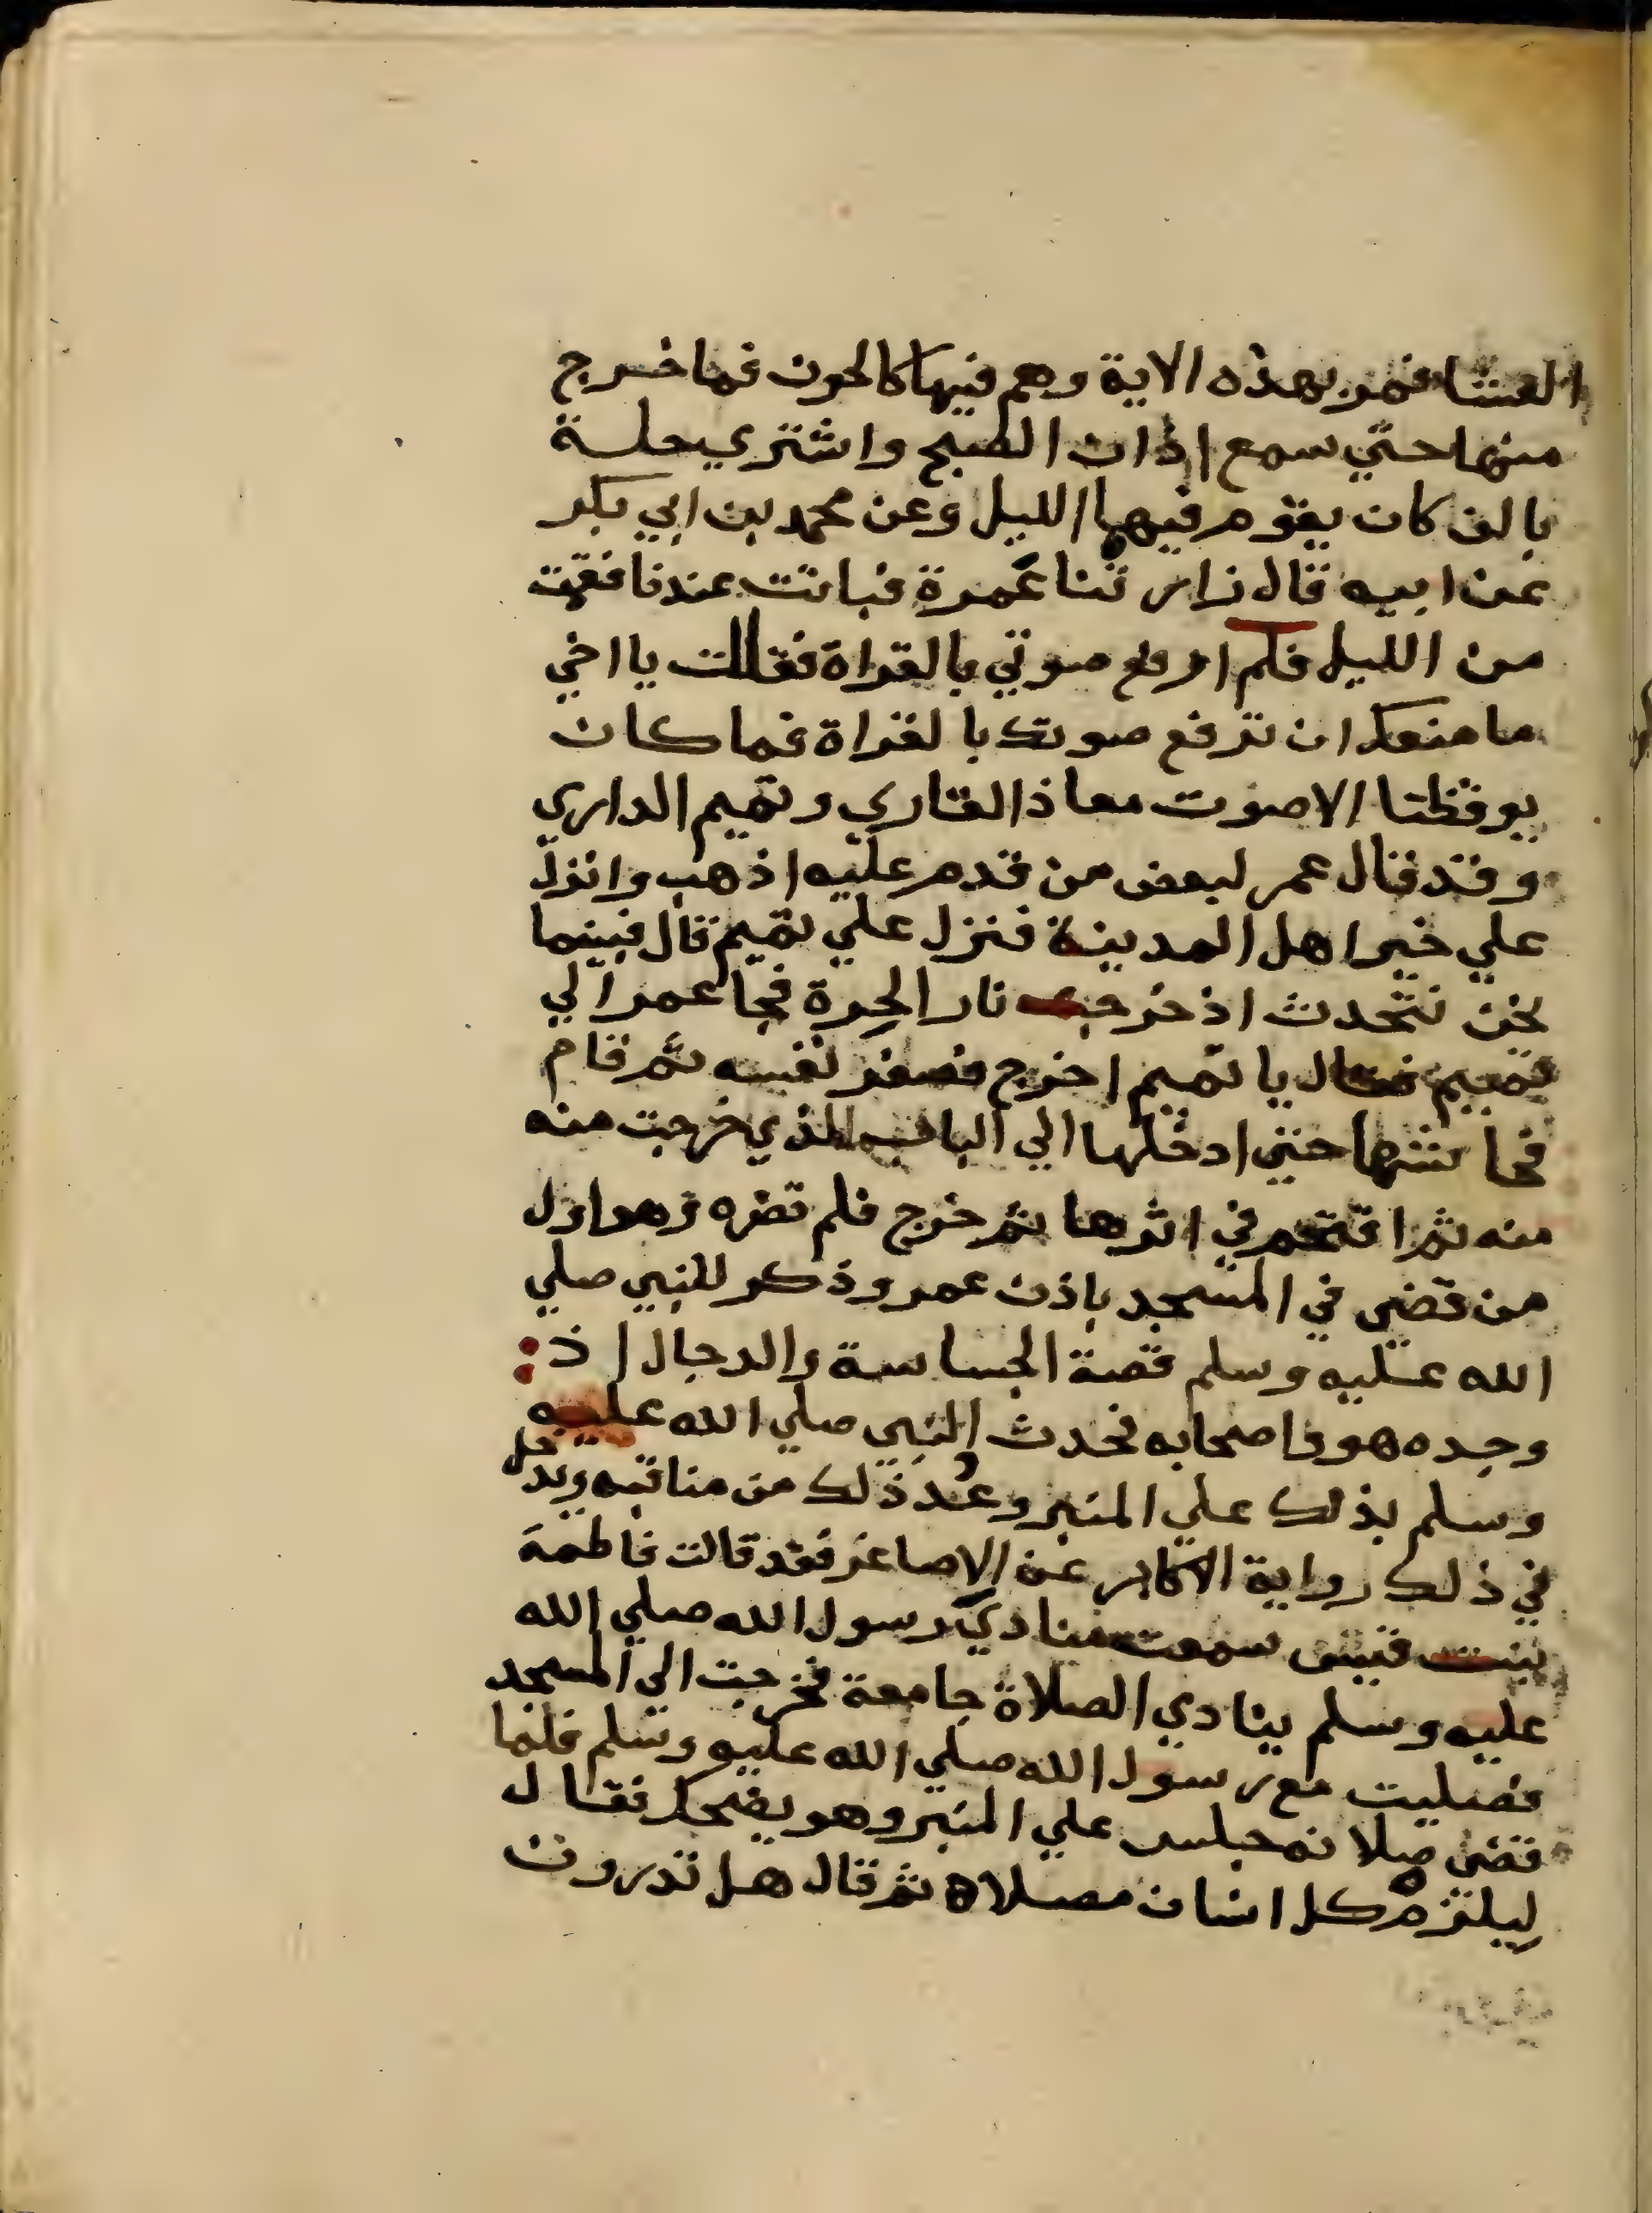 العشا فمر بهذه الاية وهم فيها كالحون فما خرج
منها حتي سمع اذان الصبح واشتري حلة
بالف كان يقوم فيها الليل وعن محمد بن ابي بكر
عن ابيه قال زارتنا عمرة فباتت عندنا فقمت
من الليل فلم ارفع صوتي بالقراة فقالت يا اخي
ما منعك ان ترفع صوتك بالقراة فما كان
يوقظنا الا صوت معاذ القاري وتميم الداري
وقد قال عمر لبعض من قدم عليه اذهب وانزل
علي خير اهل المدينة فنزل علي تميم قال فبينما
نحن نتحدث اذ خرجت نار الحرة فجا عمر الي
تميم فقال يا تميم اخرج فصغر نفسه ثم قام
فحاشها حتي ادخلها الي الباب الذي خرجت منه
منه ثم اقتحم في اثرها ثم خرج فلم تضره وهو اول
من قص في المسجد باذن عمر وذكر للنبي صلي
الله عليه وسلم قصة الجساسة والدجال اذ
وجده هو واصحابه فحدث النبي صلي الله عليه
وسلم بذلك علي المنبر وعُد ذلك من مناقبه ويدخل
في ذلك رواية الاكابر عن الاصاغر فقد قالت فاطمة
بنت قيس سمعت منادي رسول الله صلي الله
عليه وسلم ينادي الصلاة جامعة فخرجت الي المسجد
فصليت مع رسول الله صلي الله عليه وسلم فلما
قضي صلاته جلس علي المنبر وهو يضحك فقال
ليلتزم كل انسان مصلاه ثم قال هل تدرون